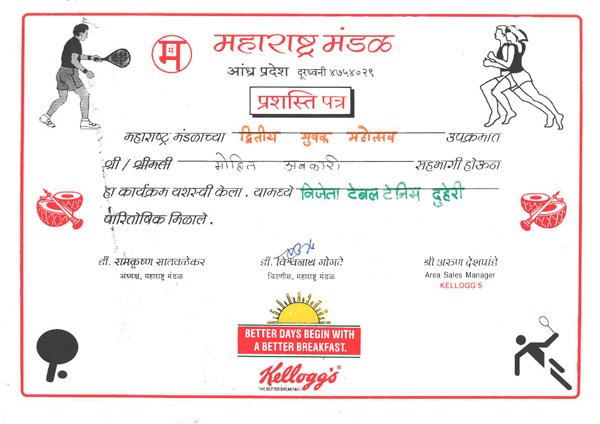 मं
म
महाराष्ट्र मंडळ
आंध्र प्रदेश दूरध्वनी ४७५४०२९
प्रशस्ति पत्र
महाराष्ट्र मंडळाच्या द्वितीय युवक महोत्सव उपक्रमात
श्री / श्रीमती मोहित अबकारी सहभागी होऊन
हा कार्यक्रम यशस्वी केला. यामध्ये विजेता टेबल टेनिस दुहेरी
पारितोषिक मिळाले.
डॉ. रामकृष्ण सातवळेकर डॉ. विश्वनाथ गोगटे श्री अरुण देशपांडे
अध्यक्ष, महाराष्ट्र मंडळ चिटणीस, महाराष्ट्र मंडळ Area Sales Manager
KELLOGG'S
BETTER DAYS BEGIN WITH
A BETTER BREAKFAST.
Kellogg's
THE BETTER BREAKFAST